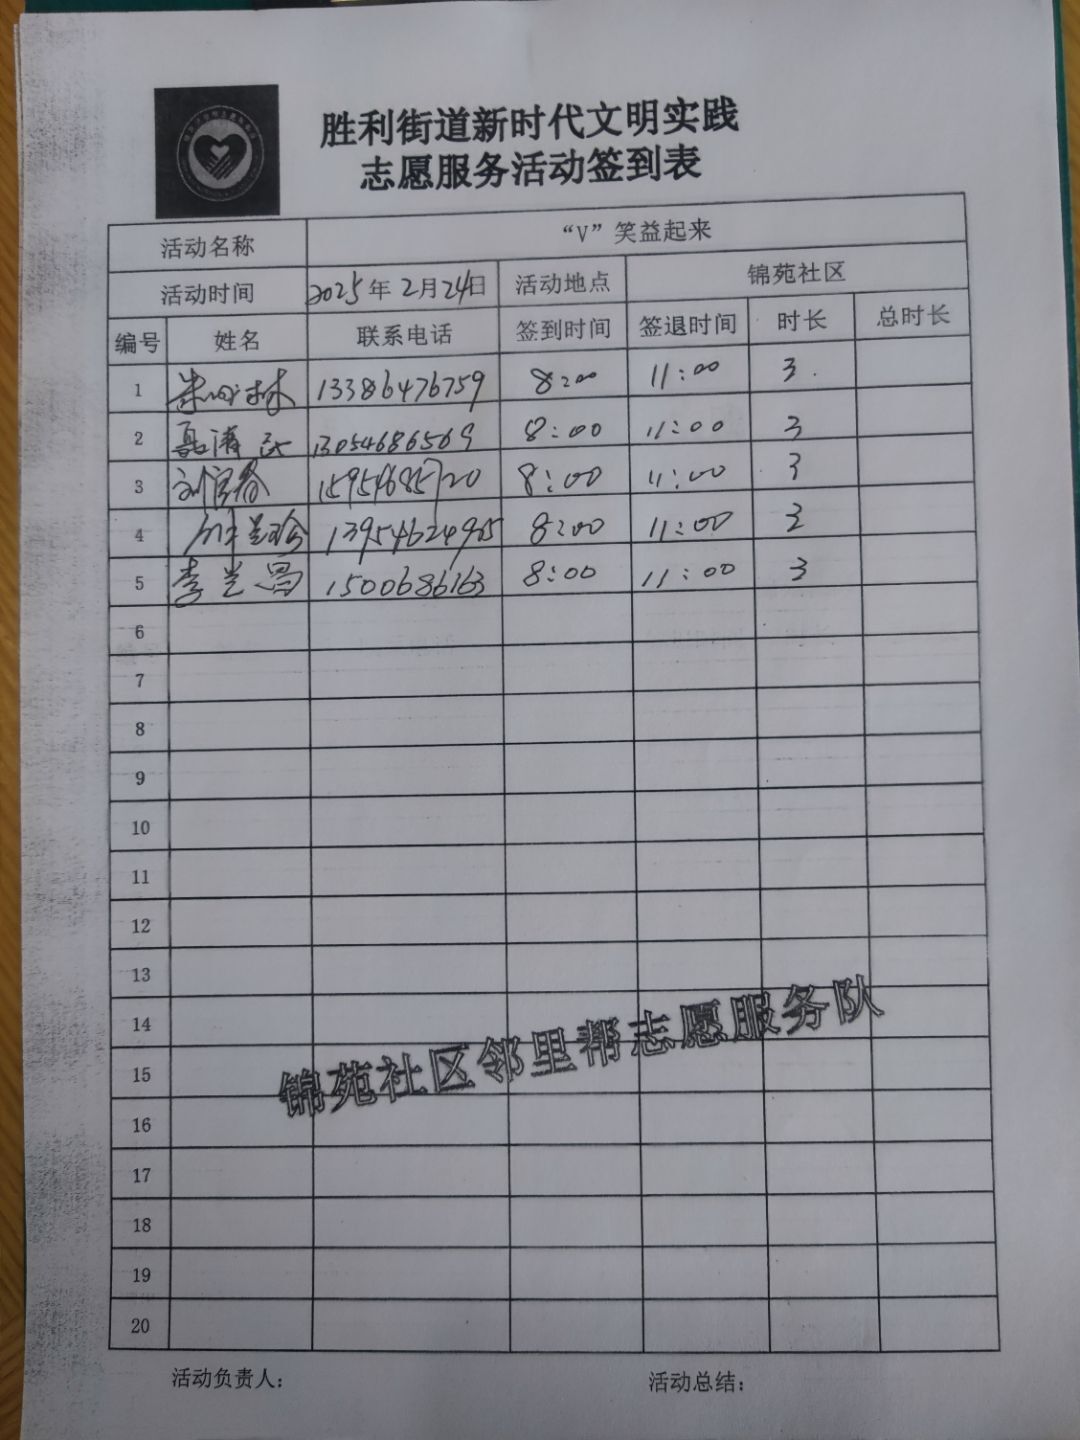 胜利街道新时代文明实践
志愿服务活动签到表
活动名称 “V”笑益起来
活动时间 2025年2月24日 活动地点 锦苑社区
编号 姓名 联系电话 签到时间 签退时间 时长 总时长
1 13386476759 8:00 11:00 3
2 13054686569 8:00 11:00 3
3 15954685720 8:00 11:00 3
4 8:00 11:00 3
5 李兰昌 1500686163 8:00 11:00 3
6
7
8
9
10
11
12
13
14
15
16
17
18
19
20
锦苑社区邻里帮志愿服务队
活动负责人： 活动总结：